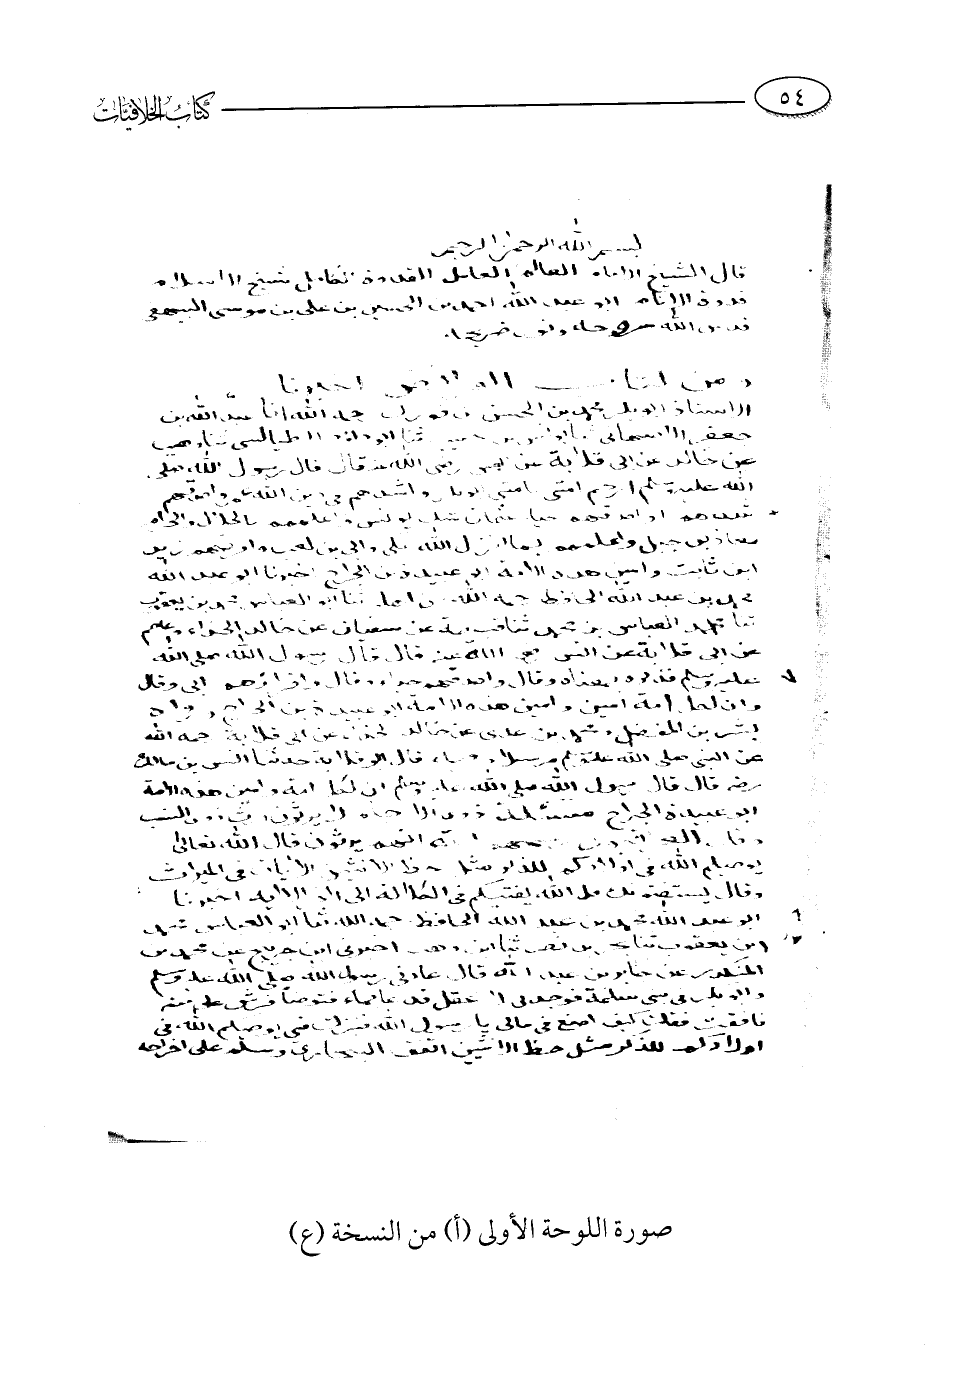 ٥٤
كتاب الخلافيات
بسم الله الرحمن الرحيم
قال الشيخ الامام العالم العامل القدوة الكامل شيخ الاسلام
قدوة الانام ابو عبد الله احمد بن الحسين بن على بن موسى البيهقي
قدس الله روحه ونور ضريحه
ومن اخبرنا
الاستاذ ابو بكر محمد بن الحسن بن فورك رحمه الله انا عبد الله بن
جعفر الاصبهاني ثنا يونس بن حبيب ثنا ابو داود الطيالسي ثنا وهيب
عن خالد عن ابي قلابة عن انس رضي الله عنه قال قال رسول الله صلى
الله عليه وسلم ارحم امتي بامتي ابو بكر واشدهم في دين الله عمر واصدقهم
حياء عثمان واعلمهم بالحلال والحرام
معاذ بن جبل واعلمهم بما انزل الله علي ابي بن كعب وافرضهم زيد
ابن ثابت وامين هذه الامة ابو عبيدة بن الجراح اخبرنا ابو عبد الله
محمد بن عبد الله الحافظ رحمه الله ثنا ابو العباس محمد بن يعقوب
ثنا العباس بن محمد ثنا قبيصة عن سفيان عن خالد الحذاء وعاصم
عن ابي قلابة عن انس رضي الله عنه قال قال رسول الله صلى الله
عليه وسلم فذكره بمعناه وقال واصدقهم حياء وقال واقراؤهم ابي وقال
وان لكل امة امين وامين هذه الامة ابو عبيدة بن الجراح رواه
بشر بن المفضل ومحمد بن عدي عن خالد الحذاء عن ابي قلابة رحمه الله
عن النبي صلى الله عليه وسلم مرسلا قال ابو قلابة حدثنا انس بن مالك
رضه قال قال رسول الله صلى الله عليه وسلم ان لكل امة وامين هذه الامة
ابو عبيدة بن الجراح مسئلة ذوو الارحام لا يرثون
انهم يرثون قال الله تعالى
يوصيكم الله في اولادكم للذكر مثل حظ الانثيين الايتان في الميراث
وقال يستفتونك قل الله يفتيكم في الكلالة الى اخر الاية اخبرنا
ابو عبد الله محمد بن عبد الله الحافظ رحمه الله ثنا ابو العباس محمد
ابن يعقوب ثنا بحر بن نصر ثنا ابن وهب اخبرني ابن جريج عن محمد بن
المنكدر عن جابر بن عبد الله قال عادني رسول الله صلى الله عليه وسلم
وابو بكر في بني سلمة فوجدني لا اعقل فدعا بماء فتوضأ فرش علي منه
فافقت فقلت كيف اصنع في مالي يا رسول الله فنزلت في يوصيكم الله في
اولادكم للذكر مثل حظ الانثيين اتفق البخاري ومسلم على اخراجه
صورة اللوحة الأولى (أ) من النسخة (ع)